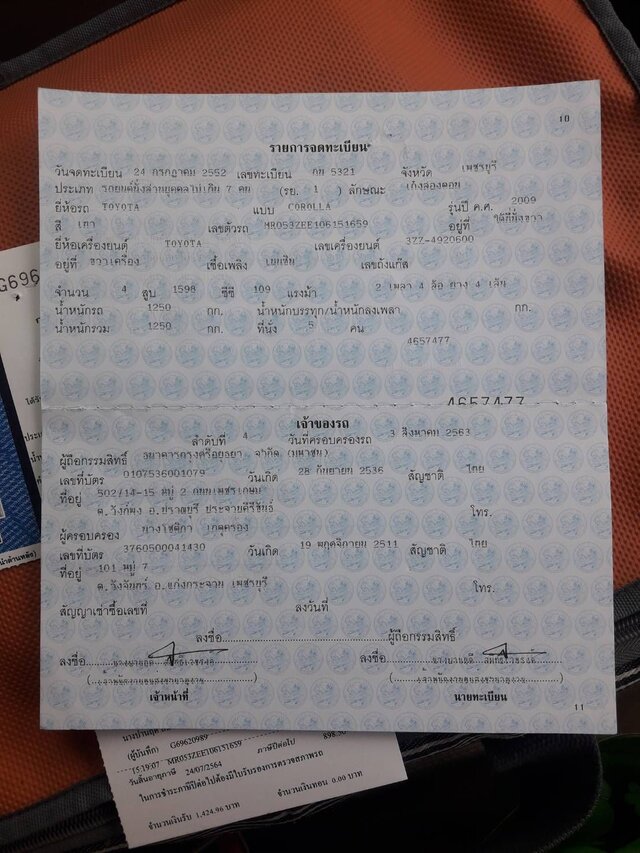 10
รายการจดทะเบียน
วันจดทะเบียน 24 กรกฎาคม 2552 เลขทะเบียน กน 5321 จังหวัด เพชรบุรี
ประเภท รถยนต์นั่งส่วนบุคคลไม่เกิน 7 คน (รย. 1 ) ลักษณะ เก๋งสองตอน
ยี่ห้อรถ TOYOTA แบบ COROLLA รุ่นปี ค.ศ. 2009
สี เทา เลขตัวรถ MR053ZEE106151659 อยู่ที่
ยี่ห้อเครื่องยนต์ TOYOTA เลขเครื่องยนต์ 3ZZ-4920600
อยู่ที่ ขวาเครื่อง เชื้อเพลิง เบนซิน เลขถังแก๊ส
จำนวน 4 สูบ 1598 ซีซี 109 แรงม้า 2 เพลา 4 ล้อ ยาง 4 เส้น
น้ำหนักรถ 1250 กก. น้ำหนักบรรทุก/น้ำหนักลงเพลา กก.
น้ำหนักรวม 1250 กก. ที่นั่ง 5 คน
4657477
4657477
เจ้าของรถ
ลำดับที่ 4 วันที่ครอบครองรถ 3 สิงหาคม 2563
ผู้ถือกรรมสิทธิ์ ธนาคารกรุงศรีอยุธยา จำกัด (มหาชน)
เลขที่บัตร 0107536001079 วันเกิด 28 กันยายน 2536 สัญชาติ ไทย
ที่อยู่ 502/14-15 หมู่ 2 ถนนเพชรเกษม
ต.วังก์พง อ.ปราณบุรี ประจวบคีรีขันธ์ โทร.
ผู้ครอบครอง นางโชติกา
เลขที่บัตร 3760500041430 วันเกิด 19 พฤศจิกายน 2511 สัญชาติ ไทย
ที่อยู่ 101 หมู่ 7
ต.วังจันทร์ อ.แก่งกระจาน เพชรบุรี โทร.
สัญญาเช่าซื้อเลขที่ ลงวันที่
ลงชื่อ ผู้ถือกรรมสิทธิ์
ลงชื่อ ลงชื่อ
เจ้าหน้าที่ นายทะเบียน
11
G696
(ผู้บันทึก) G69620989
15:19:07 MR053ZEE106151659 ภาษีปีต่อไป 898.50
วันสิ้นอายุภาษี 24/07/2564
ในการชำระภาษีปีต่อไปต้องมีใบรับรองการตรวจสภาพรถ
จำนวนเงินรับ 1,424.96 บาท จำนวนเงินทอน 0.00 บาท